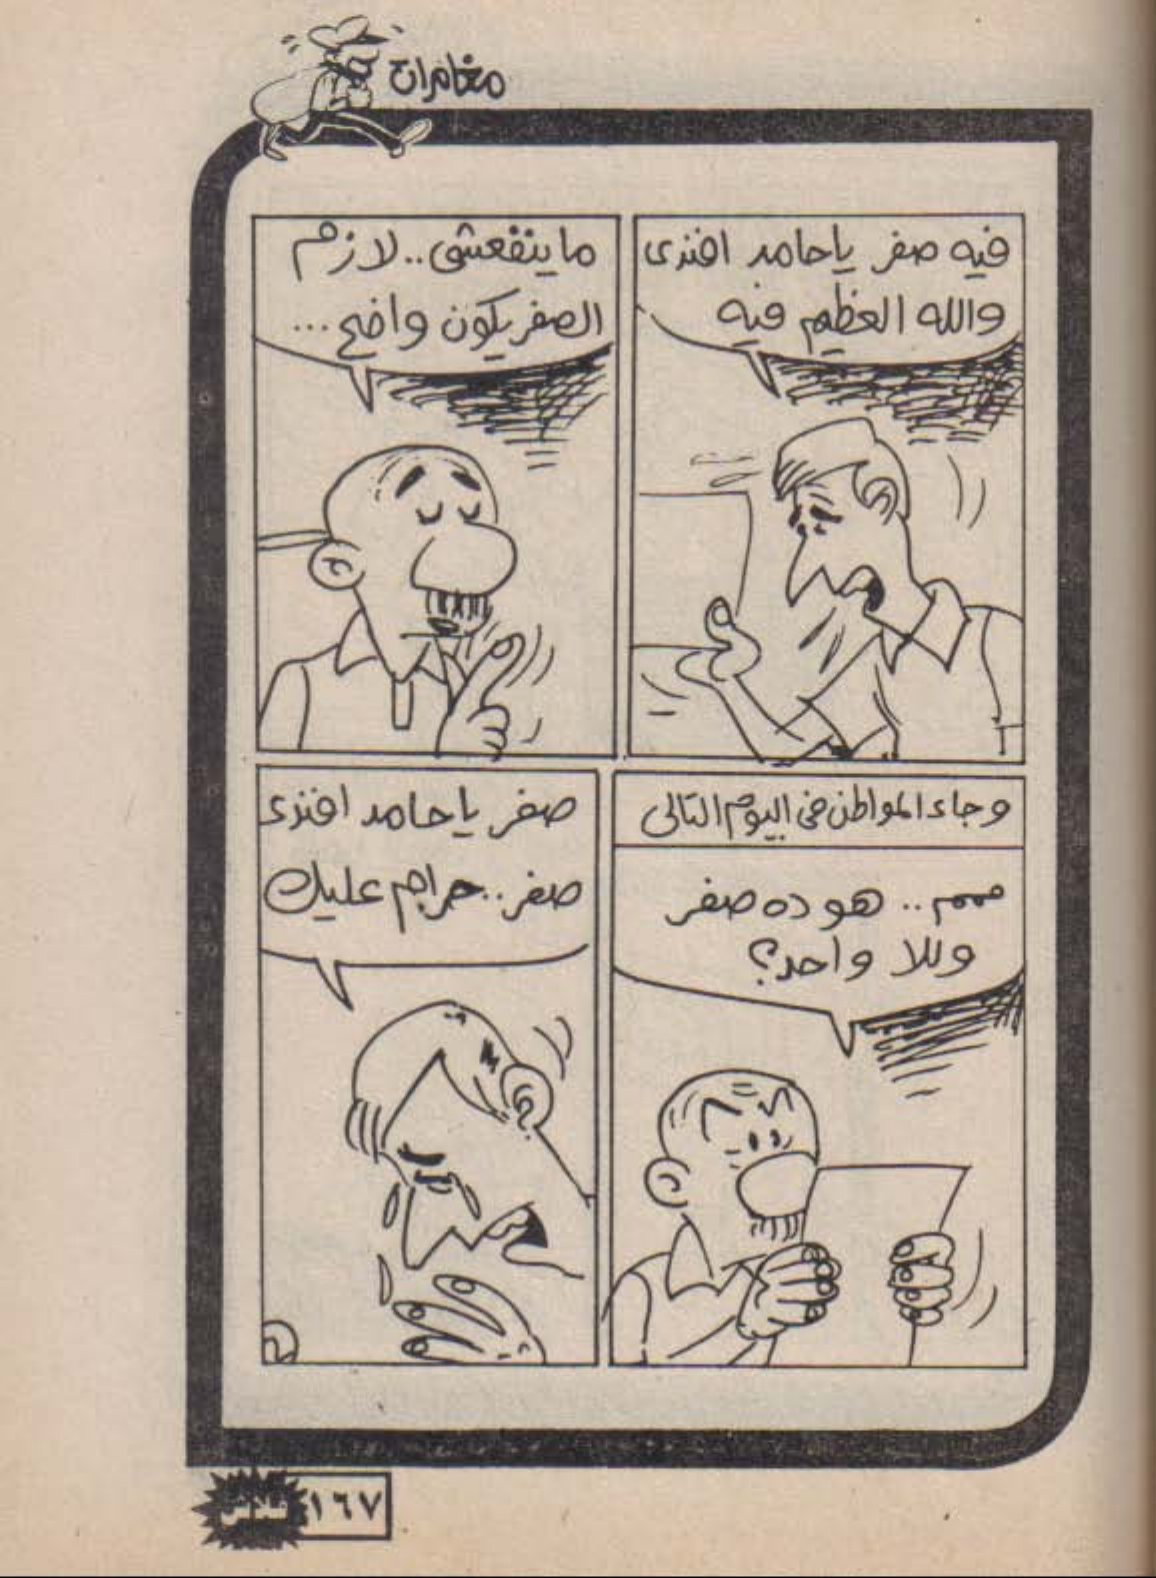 مغامرات
فيه صفر ياحامد افندى
والله العظيم فيه
ماينفعشى..لازم
الصفر يكون واضح...
وجاء المواطن فى اليوم التالى
ممم.. هو ده صفر
وللا واحد؟
صفر ياحامد افندى
صفر..حرام عليك
فلاش
١٦٧